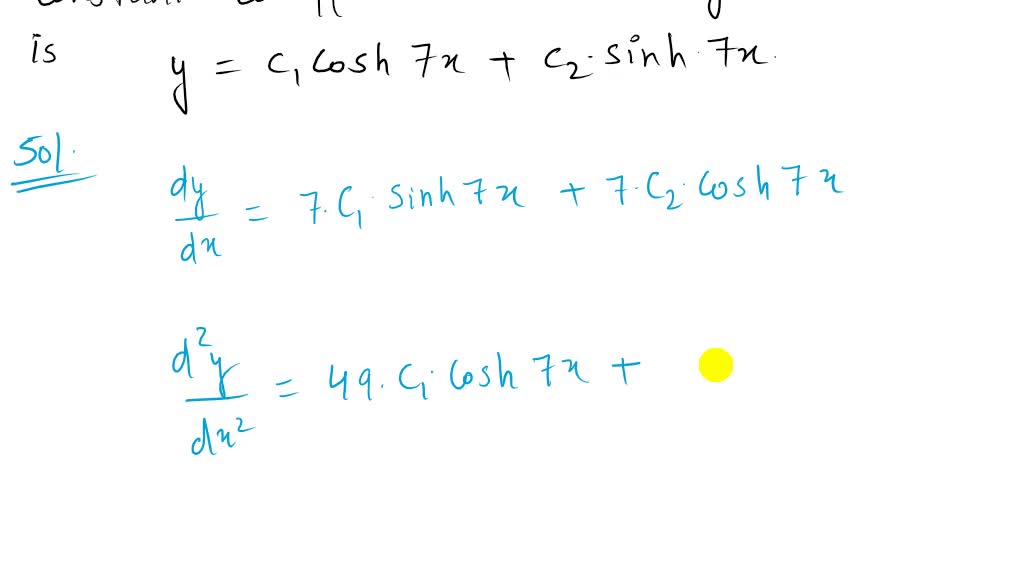 is
y = c₁ cosh 7x + c₂· sinh 7x.
Sol.
dy/dx = 7·C₁· sinh 7x + 7·C₂· cosh 7x
d²y/dx² = 49· C₁· cosh 7x +